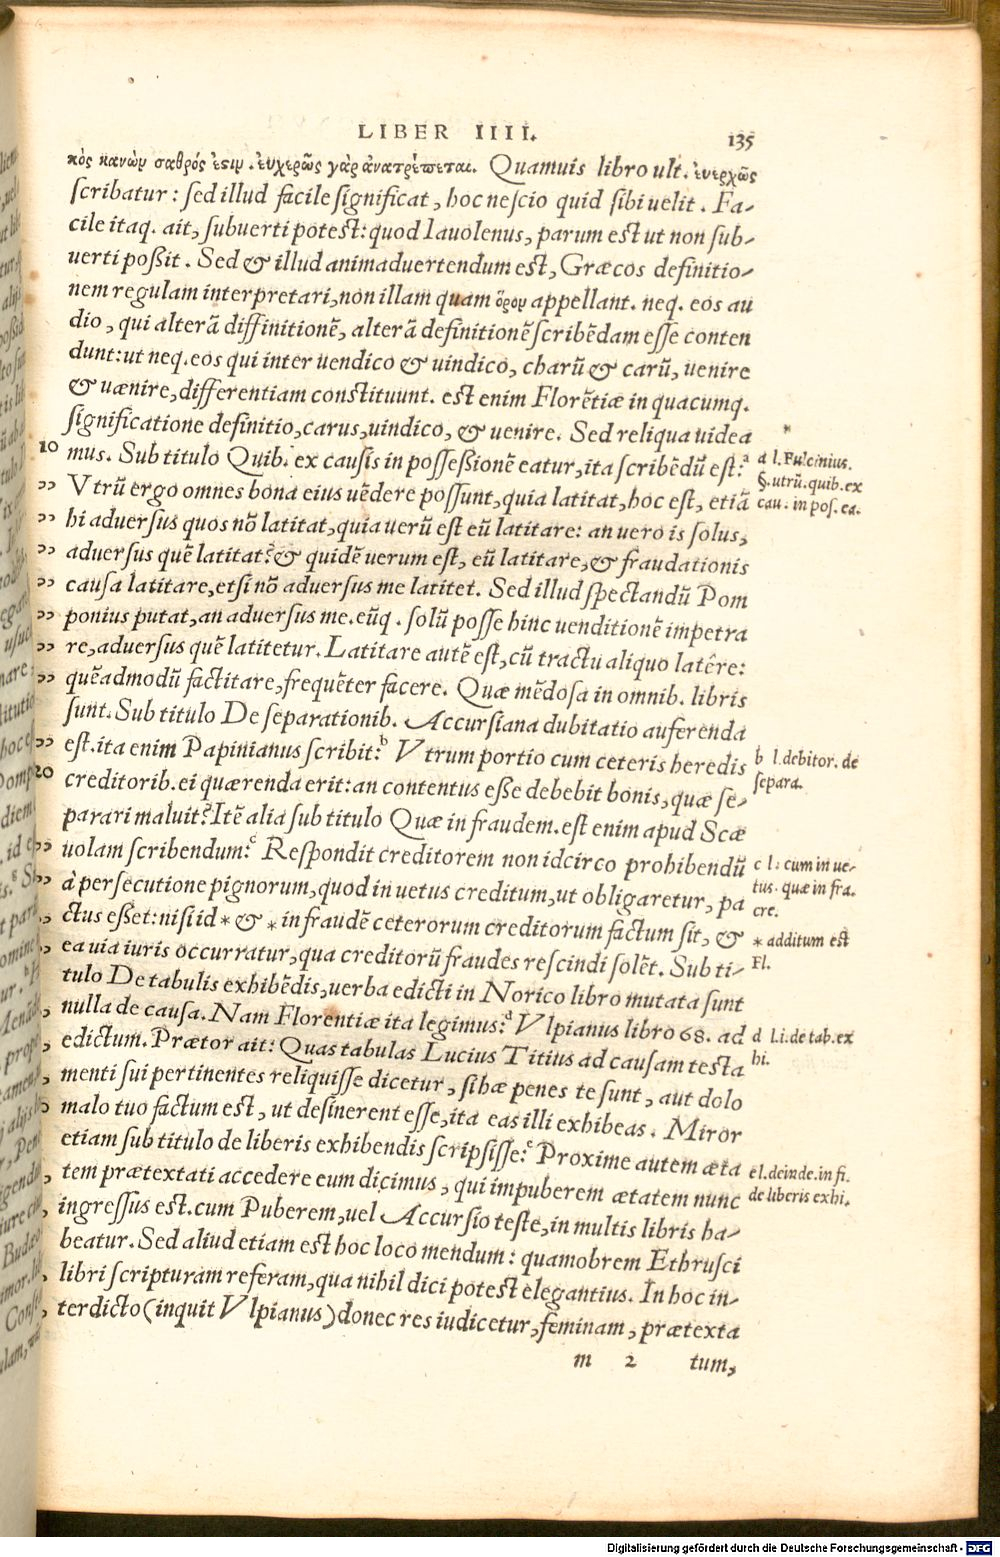 LIBER IIII. 135
κὸς κανὼν σαθρός ἐστιν. εὐχερῶς γὰρ ἀνατρέπεται. Quamuis libro ult. ἐνερχῶς
scribatur: sed illud facile significat, hoc nescio quid sibi uelit. Fa-
cile itaq. ait, subuerti potest: quod Iauolenus, parum est ut non sub-
uerti poßit. Sed & illud animaduertendum est, Græcos definitio-
nem regulam interpretari, non illam quam ὅρον appellant. neq. eos au
dio, qui alterã diffinitionẽ, alterã definitionẽ scribẽdam esse conten
dunt: ut neq. eos qui inter uendico & uindico, charũ & carũ, uenire
& uænire, differentiam constituunt. est enim Florẽtiæ in quacumq.
significatione definitio, carus, uindico, & uenire. Sed reliqua uidea
10 mus. Sub titulo Quib. ex causis in possessionẽ eatur, ita scribẽdũ est:ᵃ
a l. Fulcinius.
§. utrũ. quib. ex
cau. in pos. ea.
,, Vtrũ ergo omnes bona eius uẽdere possunt, quia latitat, hoc est, etiã
,, hi aduersus quos nõ latitat, quia uerũ est eũ latitare: an uero is solus,
,, aduersus quẽ latitat? & quidẽ uerum est, eũ latitare, & fraudationis
,, causa latitare, etsi nõ aduersus me latitet. Sed illud spectandũ Pom
,, ponius putat, an aduersus me. eũq. solũ posse hinc uenditionẽ impetra
,, re, aduersus quẽ latitetur. Latitare autẽ est, cũ tractu aliquo latêre:
,, quẽadmodũ factitare, frequẽter facere. Quæ mẽdosa in omnib. libris
sunt. Sub titulo De separationib. Accursiana dubitatio auferenda
,, est. ita enim Papinianus scribit:ᵇ Vtrum portio cum ceteris heredis
b l. debitor. de
separa.
20 creditorib. ei quærenda erit: an contentus eße debebit bonis, quæ se-
parari maluit? Itẽ alia sub titulo Quæ in fraudem. est enim apud Scæ
,, uolam scribendum:ᶜ Respondit creditorem non idcirco prohibendũ
c l. cum in ue-
tus. quæ in fra.
cre.
,, à persecutione pignorum, quod in uetus creditum, ut obligaretur, pa
,, ctus eßet: nisi id * & * in fraudẽ ceterorum creditorum factum sit, &
* additum est
Fl.
,, ea uia iuris occurratur, qua creditorũ fraudes rescindi solẽt. Sub ti-
tulo De tabulis exhibẽdis, uerba edicti in Norico libro mutata sunt
, nulla de causa. Nam Florentiæ ita legimus:ᵈ Vlpianus libro 68. ad
d l. i. de tab. ex
hi.
, edictum. Prætor ait: Quas tabulas Lucius Titius ad causam testa
, menti sui pertinentes reliquisse dicetur, si hæ penes te sunt, aut dolo
, malo tuo factum est, ut desinerent esse, ita eas illi exhibeas. Miror
etiam sub titulo de liberis exhibendis scripsisse:ᵉ Proxime autem æta
e l. deinde. in fi.
de liberis exhi.
, tem prætextati accedere eum dicimus, qui impuberem ætatem nunc
, ingressus est. cum Puberem, uel Accursio teste, in multis libris ha-
beatur. Sed aliud etiam est hoc loco mendum: quamobrem Ethrusci
, libri scripturam referam, qua nihil dici potest elegantius. In hoc in-
, terdicto (inquit Vlpianus) donec res iudicetur, feminam, prætexta
m 2 tum,
Digitalisierung gefördert durch die Deutsche Forschungsgemeinschaft - DFG